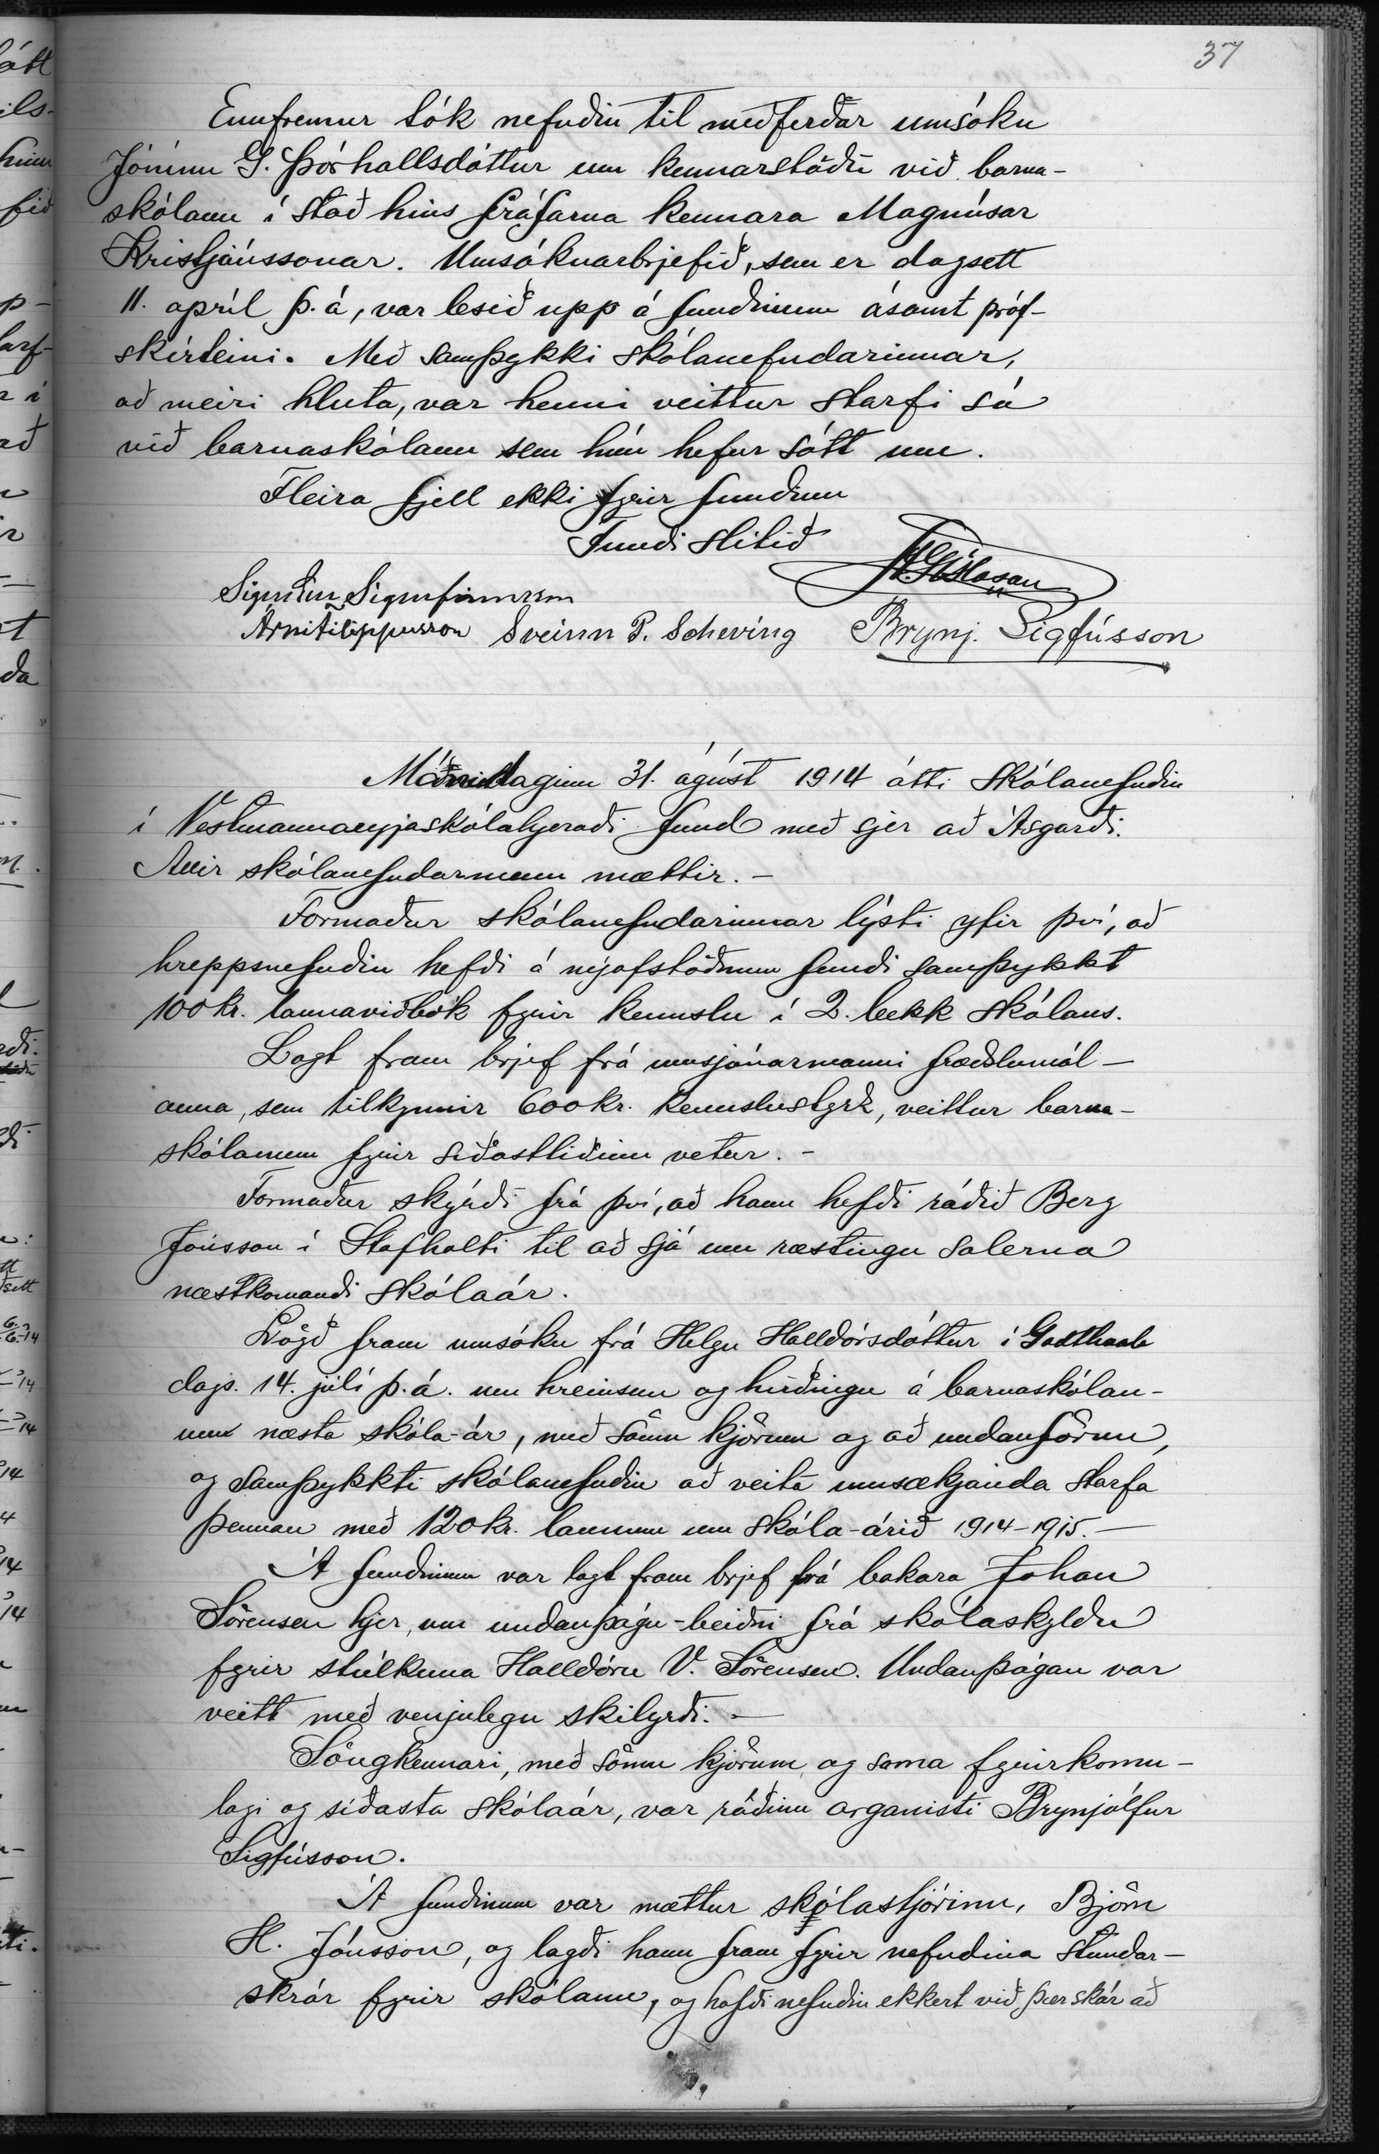 37
Ennfremur tók nefndin til meðferðar umsókn
Jónínu G. Þórhallsdóttur um kennarstöðu við barna-
skólann í stað hins fráfarna kennara Magnúsar
Kristjánssonar. Umsóknarbrjefið, sem er dagsett
11. apríl þ.á, var lesið upp á fundinum ásamt próf-
skírteini. Með samþykki skólanefndarinnar,
að meiri hluta, var henni veittur starfi sá
við barnaskólann sem hún hefur sótt um.
Fleira fjell ekki fyrir fundinn
Fundi slitið
Gíslason
Sigurður Sigurfinnsson
Árni Filippusson Sveinn P. Scheving Brynj. Sigfússon
Mánudaginn 31. ágúst 1914 átti skólanefndin
í Vestmannaeyjaskólahjeraði fund með sjer að Ásgarði.
Allir skólanefndarmenn mættir. -
Formaður skólanefndarinnar lýsti yfir því, að
hreppsnefndin hefði á nýafstöðnum fundi samþykkt
100 kr. launaviðbók fyrir kennslu í 2. bekk skólans.
Lagt fram brjef frá umsjónarmanni fræðslumál-
anna, sem tilkynnir 600 kr. kennslustyrk, veittur barna-
skólanum fyrir síðastliðinn vetur. -
Formaður skýrði frá því, að hann hefði ráðið Berg
Jónsson í Stafholti til að sjá um ræstingu salerna
næstkomandi skólaár.
Lögð fram umsókn frá Helgu Halldórsdóttur í Godthaab
dags. 14. júlí þ.á. um hreinsun og hirðingu á barnaskólan-
um næsta skóla-ár, með sömu kjörum og að undanförnu,
og samþykkti skólanefndin að veita umsækjanda starfa
þennan með 120 kr. launum um skóla-árið 1914-1915. -
Á fundinum var lagt fram brjef frá bakara Johan
Sörensen hjer, um undanþágu-beiðni frá skólaskyldu
fyrir stúlkuna Halldóru V. Sörensen. Undanþágan var
veitt með venjulegu skilyrði. -
Söngkennari, með sömu kjörum og sama fyrirkomu-
lagi og síðasta skólaár, var ráðinn organisti Brynjólfur
Sigfússon.
Á fundinum var mættur skólastjórinn, Björn
H. Jónsson, og lagði hann fram fyrir nefndina stundar-
skrár fyrir skólann, og hafði nefndin ekkert við þær skár að